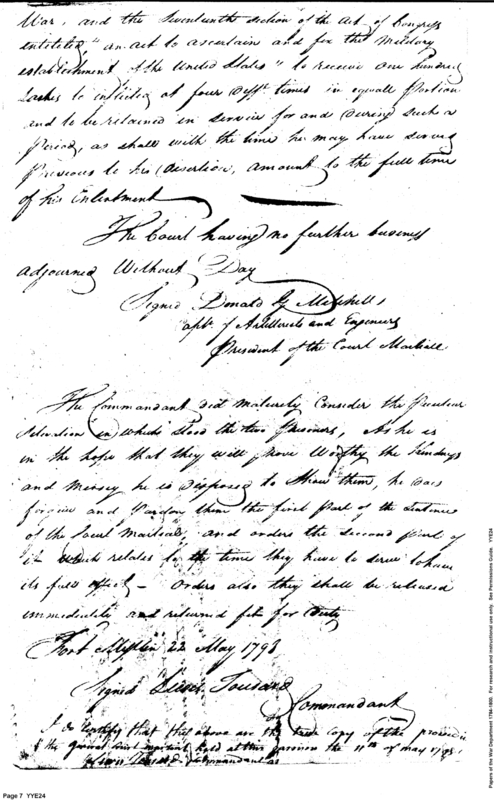 War, and the Seventeenth section of the Act of Congress
entitled, "an act to ascertain and fix the Military
establishment of the United States" to receive one hundred
Lashes to inflicted at four Difft times in equall Portion
and to be retained in service for and During such a
Period, as shall with the time he may have served
Previous to his Desertion, amount to the full time
of his Enlistment
The Court having no further business
adjourned Without Day
Signed Donald G Mitchell
Capt. of Artillerists and Engineers
President of the Court Martiall
The Commandant did maturely Consider the
in which stood the two Prisoners, As he is
in the hope that they will prove Worthy the Kindness
and Mersey he is Disposed to Show them, he does
forgive and Pardon them the first part of the Sentence
of the Court Martial, and orders the second part of
it which relates to the time they have to serve to have
its full effect - Orders also they shall be released
immediately and returned fit for Duty
Fort Mifflin 22 May 1798
Signed Tousard
Commandant
I do Certify that the above are the true Copy of the
the general Court martial held at this garrison the 11th of may 1798
Louis Tousard Commandant
Page 7 YYE24
Papers of the War Department 1784-1800. For research and instructional use only. See Permissions Guide. YYE24